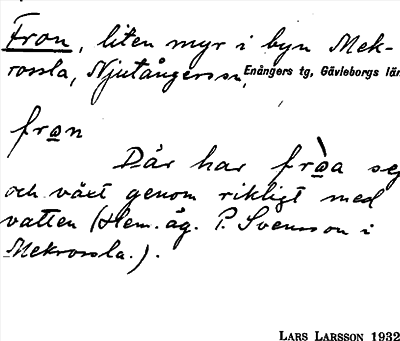 Fron, liten myr i byn Mek-
rossla, Njutångers sn, Enångers tg, Gävleborgs län
fron
Där har fròa seg
och växt genom rikligt med
vatten (Hem.äg. P. Svensson i
Mekrossla.).
LARS LARSSON 1932